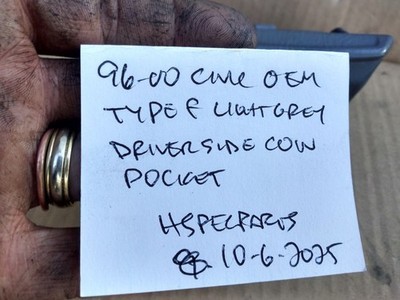 96-00 CIVIC OEM
TYPE F LIGHT GREY
DRIVER SIDE COIN
POCKET
HSPECPARTS
10-6-2025